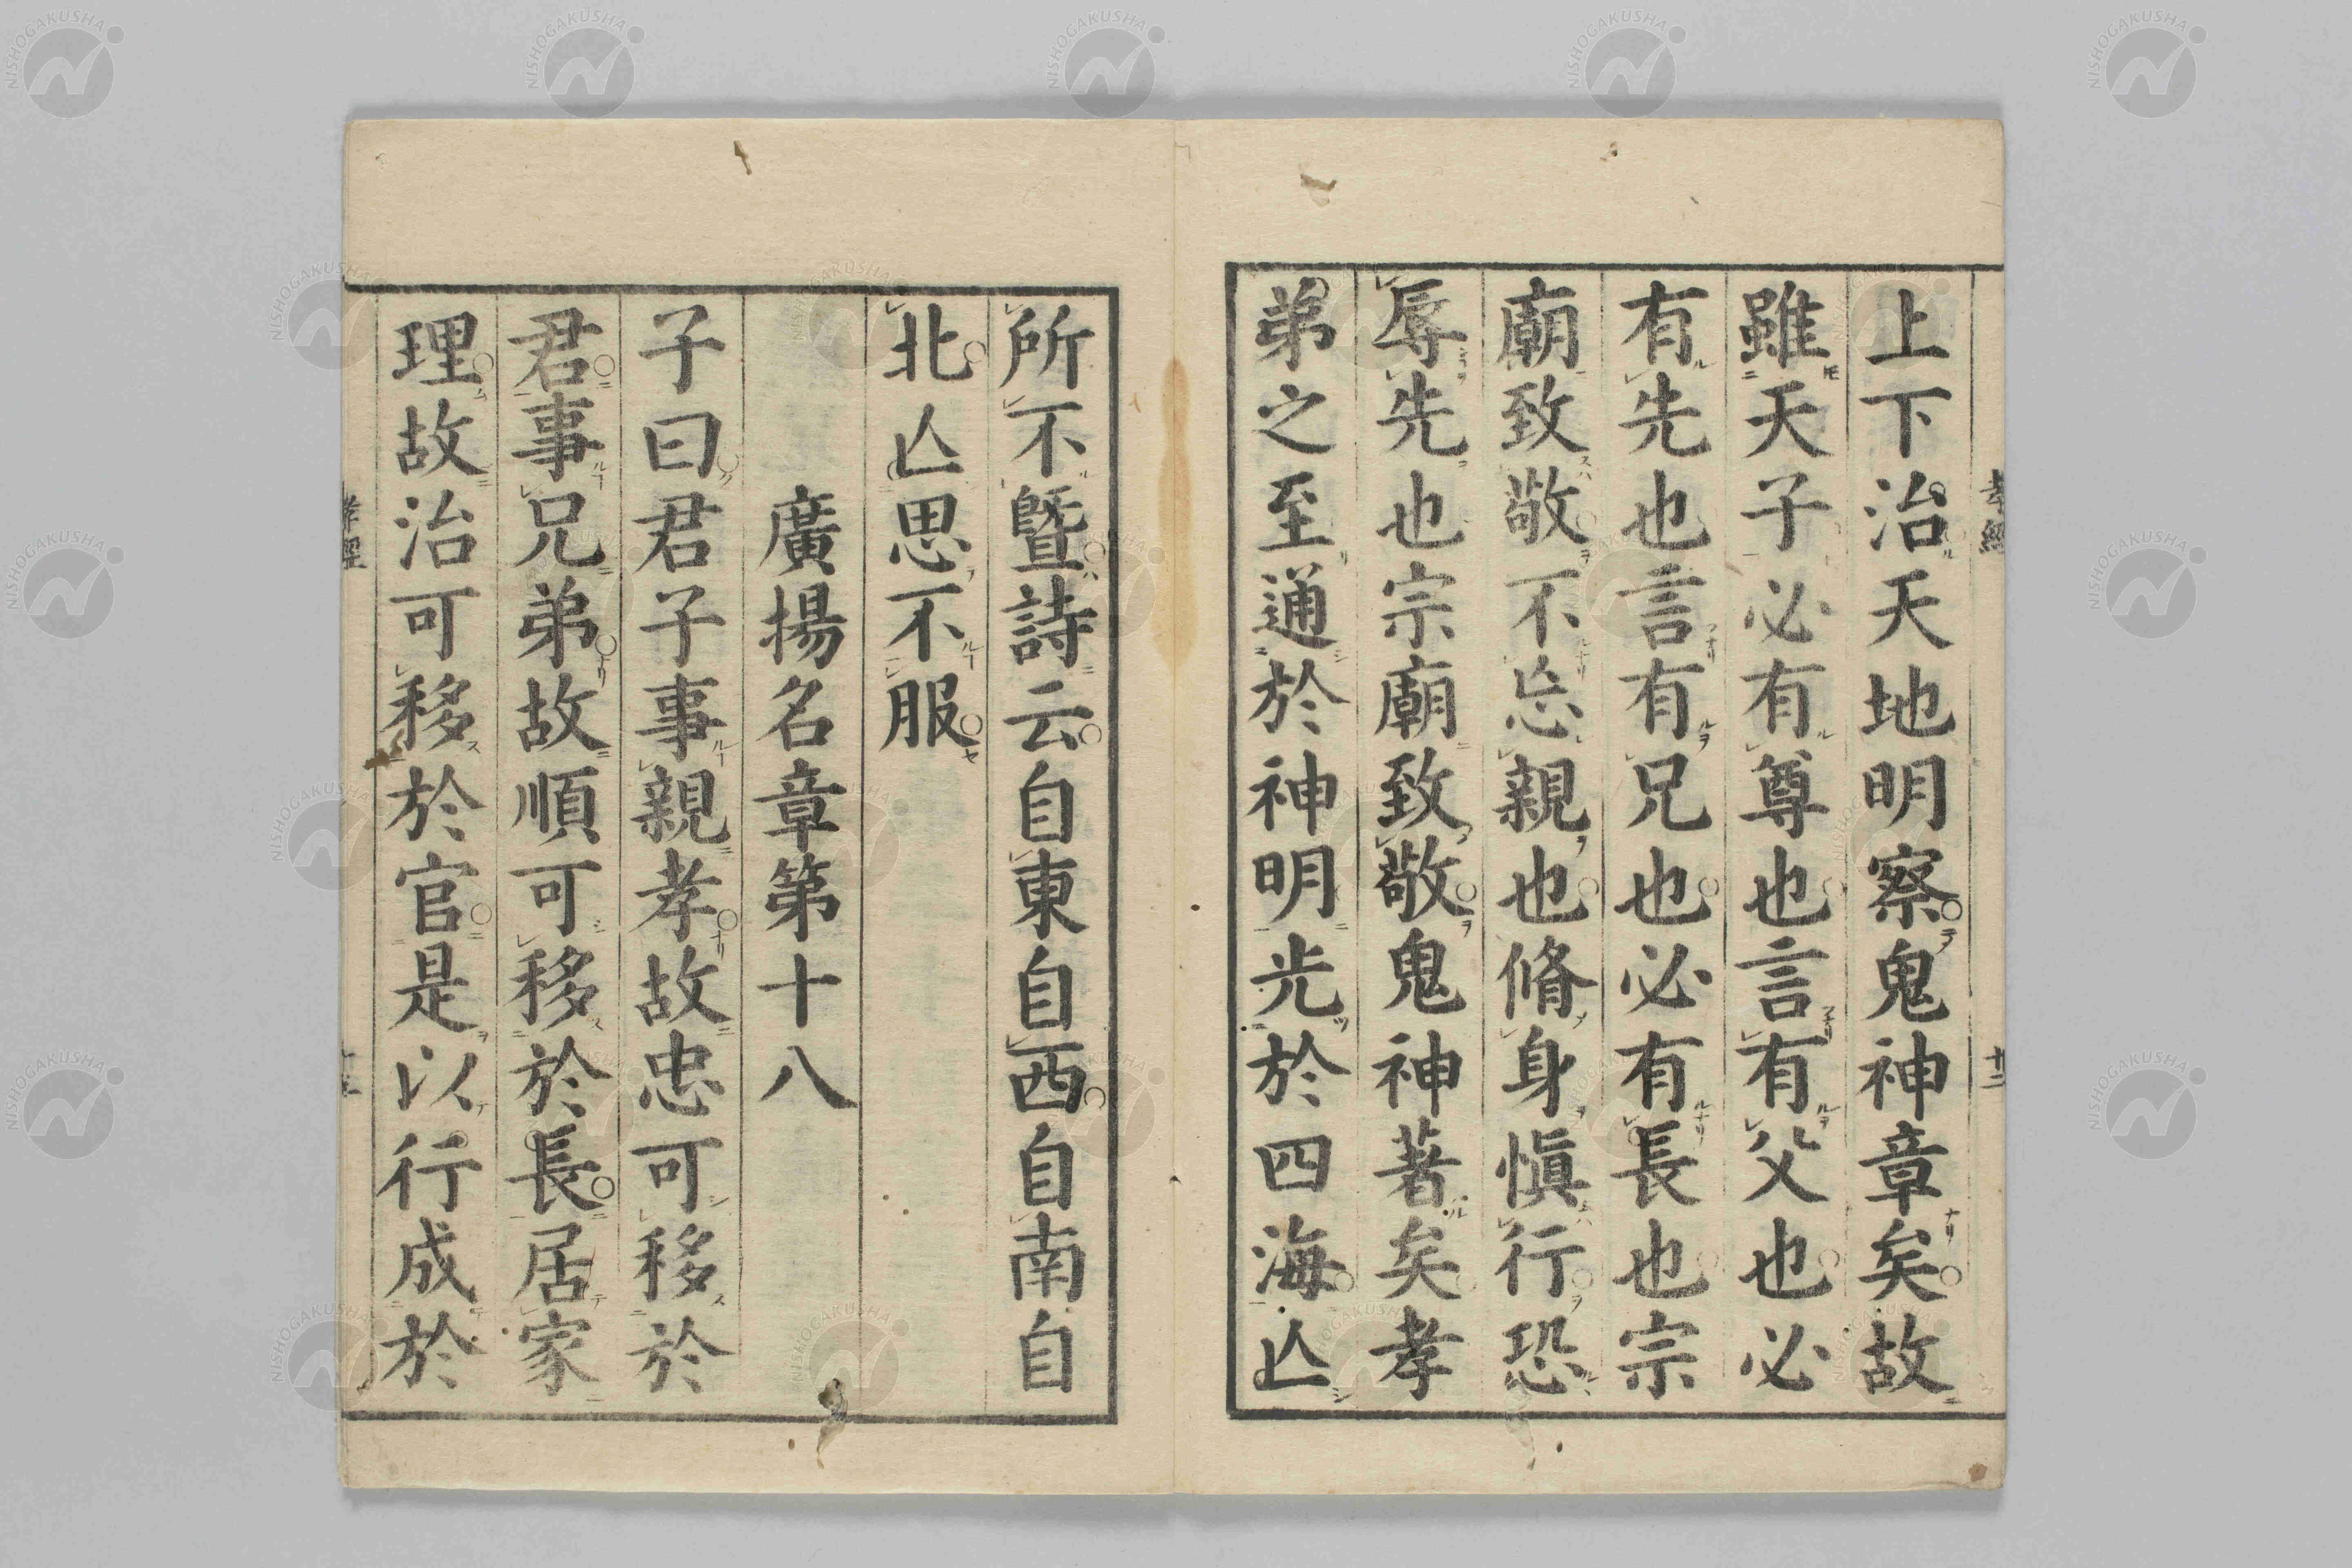 上下治天地明察鬼神章矣故
雖天子必有尊也言有父也必
有先也言有兄也必有長也宗
廟致敬不忘親也脩身愼行恐
辱先也宗廟致敬鬼神著矣孝
弟之至通於神明光於四海亾
所不曁詩云自東自西自南自
北亾思不服
廣揚名章第十八
子曰君子事親孝故忠可移於
君事兄弟故順可移於長居家
理故治可移於官是以行成於
孝經
十二
NISHOGAKUSHA